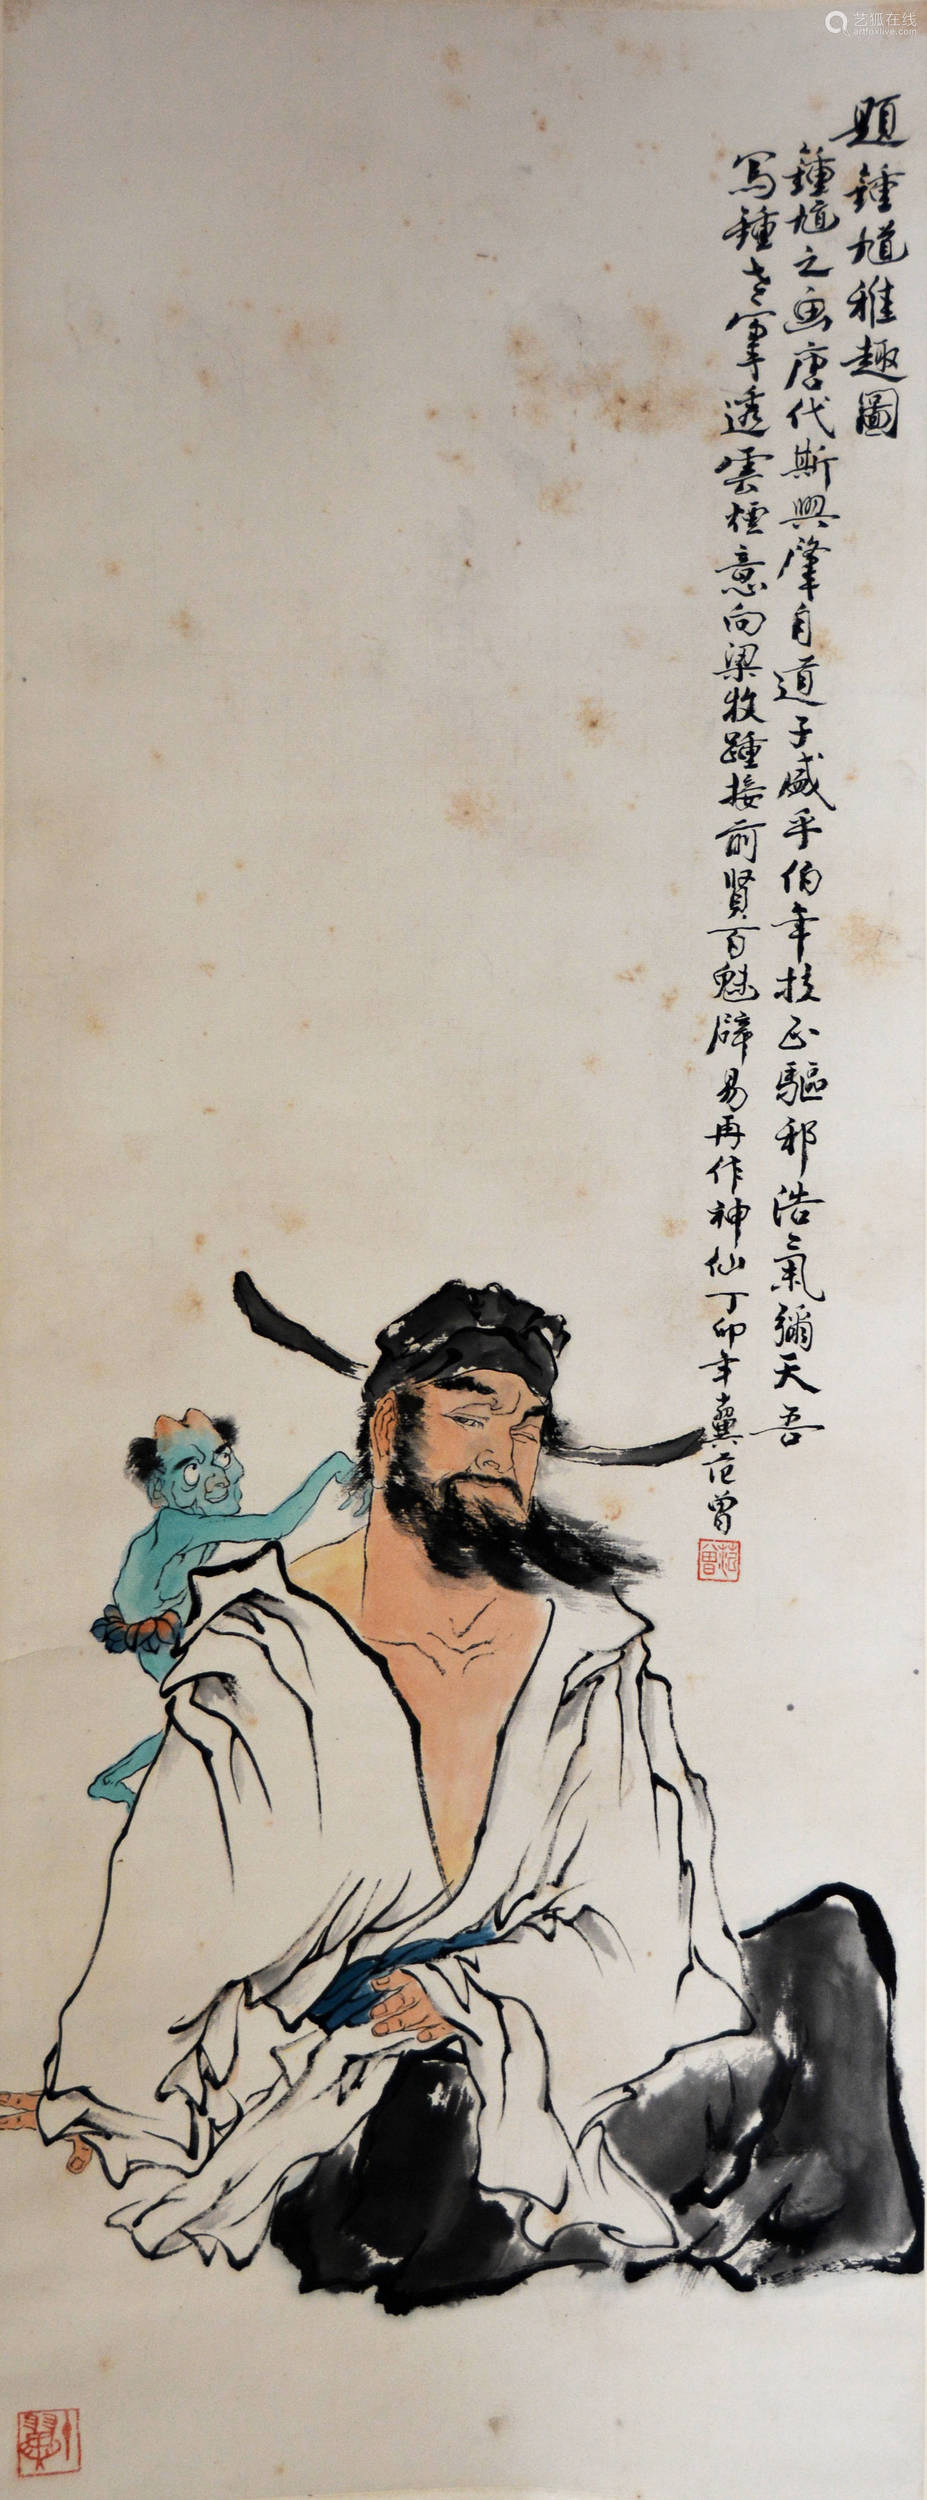 艺狐在线
artfoxlive.com
題鍾馗雅趣圖
鍾馗之画唐代斯興肇自道子盛乎伯年扶正驅邪浩氣彌天吾
寫鍾老軍透雲煙意向梁牧踵接前賢百魅辟易再作神仙丁卯年冀范曾
范曾